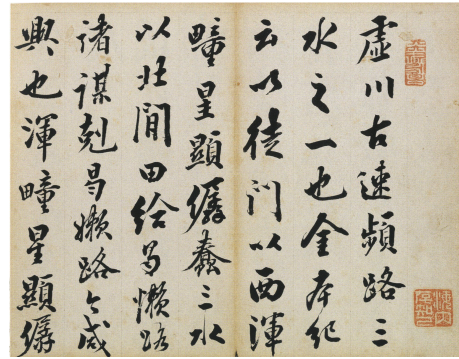 虛川古速頻路三
水之一也金本紀
云以徒門以西渾
疃星顯僝蠢三水
以北閒田給曷懶路
諸謀剋曷懶路之咸
興也渾疃星顯僝